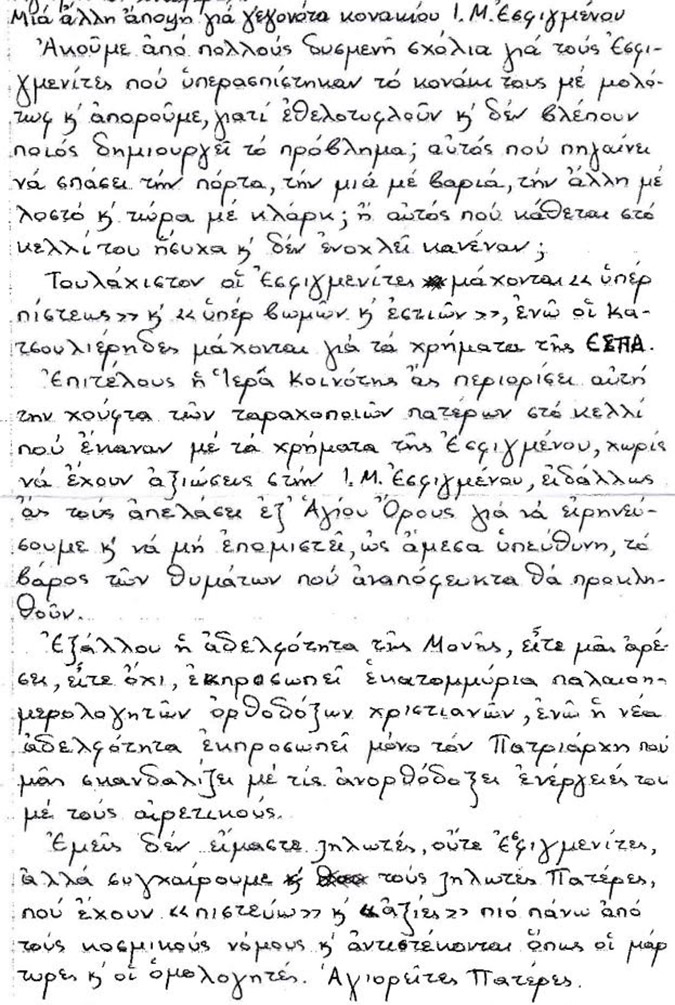 Μιά ἄλλη ἄποψη γιά γεγονότα κονακίου Ι.Μ.Ἐσφιγμένου
Ἀκοῦμε ἀπό πολλούς δυσμενῆ σχόλια γιά τούς Ἐσφι-
γμενίτες πού ὑπερασπίστηκαν τό κονάκι τους μέ μολό-
τωφ κ' ἀποροῦμε, γιατί ἐθελοτυφλοῦν κ' δέν βλέπουν
ποιός δημιουργεῖ τό πρόβλημα; αὐτός πού πηγαίνει
νά σπάσει τήν πόρτα, τήν μιά μέ βαριά, τήν ἄλλη μέ
λοστό κ' τώρα μέ κλάρκ; ἤ αὐτός πού κάθεται στό
κελλί του ἥσυχα κ' δέν ἐνοχλεῖ κανέναν;
Τουλάχιστον οἱ Ἐσφιγμενίτες μάχονται «ὑπέρ
πίστεως» κ' «ὑπέρ βωμῶν κ' ἑστιῶν», ἐνῶ οἱ Κα-
τσουλιέρηδες μάχονται γιά τά χρήματα τῆς ΕΣΠΑ.
Ἐπιτέλους ἡ Ἱερά Κοινότης ἄς περιορίσει αὐτή
τήν χούφτα τῶν ταραχοποιῶν πατέρων στό κελλί
πού ἔκαναν μέ τά χρήματα τῆς Ἐσφιγμένου, χωρίς
νά ἔχουν ἀξιώσεις στήν Ι.Μ. Ἐσφιγμένου, εἰδάλλως
ἄς τούς ἀπελάσει ἐξ' Ἁγίου Ὄρους γιά νά εἰρηνεύ-
σουμε κ' νά μή ἐπομιστεῖ, ὡς ἄμεσα ὑπεύθυνη, τό
βάρος τῶν θυμάτων πού ἀναπόφευκτα θά προκλη-
θοῦν.
Ἐξάλλου ἡ ἀδελφότητα τῆς Μονῆς, εἴτε μᾶς ἀρέ-
σει, εἴτε ὄχι, ἐκπροσωπεῖ ἑκατομμύρια παλαιοη-
μερολογητῶν ὀρθοδόξων χριστιανῶν, ἐνῶ ἡ νέα
ἀδελφότητα ἐκπροσωπεῖ μόνο τόν Πατριάρχη πού
μᾶς σκανδαλίζει μέ τίς ἀνορθόδοξει ἐνέργειές του
μέ τούς αἱρετικούς.
Ἐμεῖς δέν εἴμαστε ζηλωτές, οὔτε Ἐσφιγμενίτες,
ἀλλά συγχαίρουμε τούς ζηλωτές Πατέρες,
πού ἔχουν «πιστεύω» κ' «ἀξίες» πιό πάνω ἀπό
τούς κοσμικούς νόμους κ' ἀντιστέκονται ὅπως οἱ μάρ
τυρες κ' οἱ ὁμολογητές. Ἁγιορεῖτες Πατέρες.